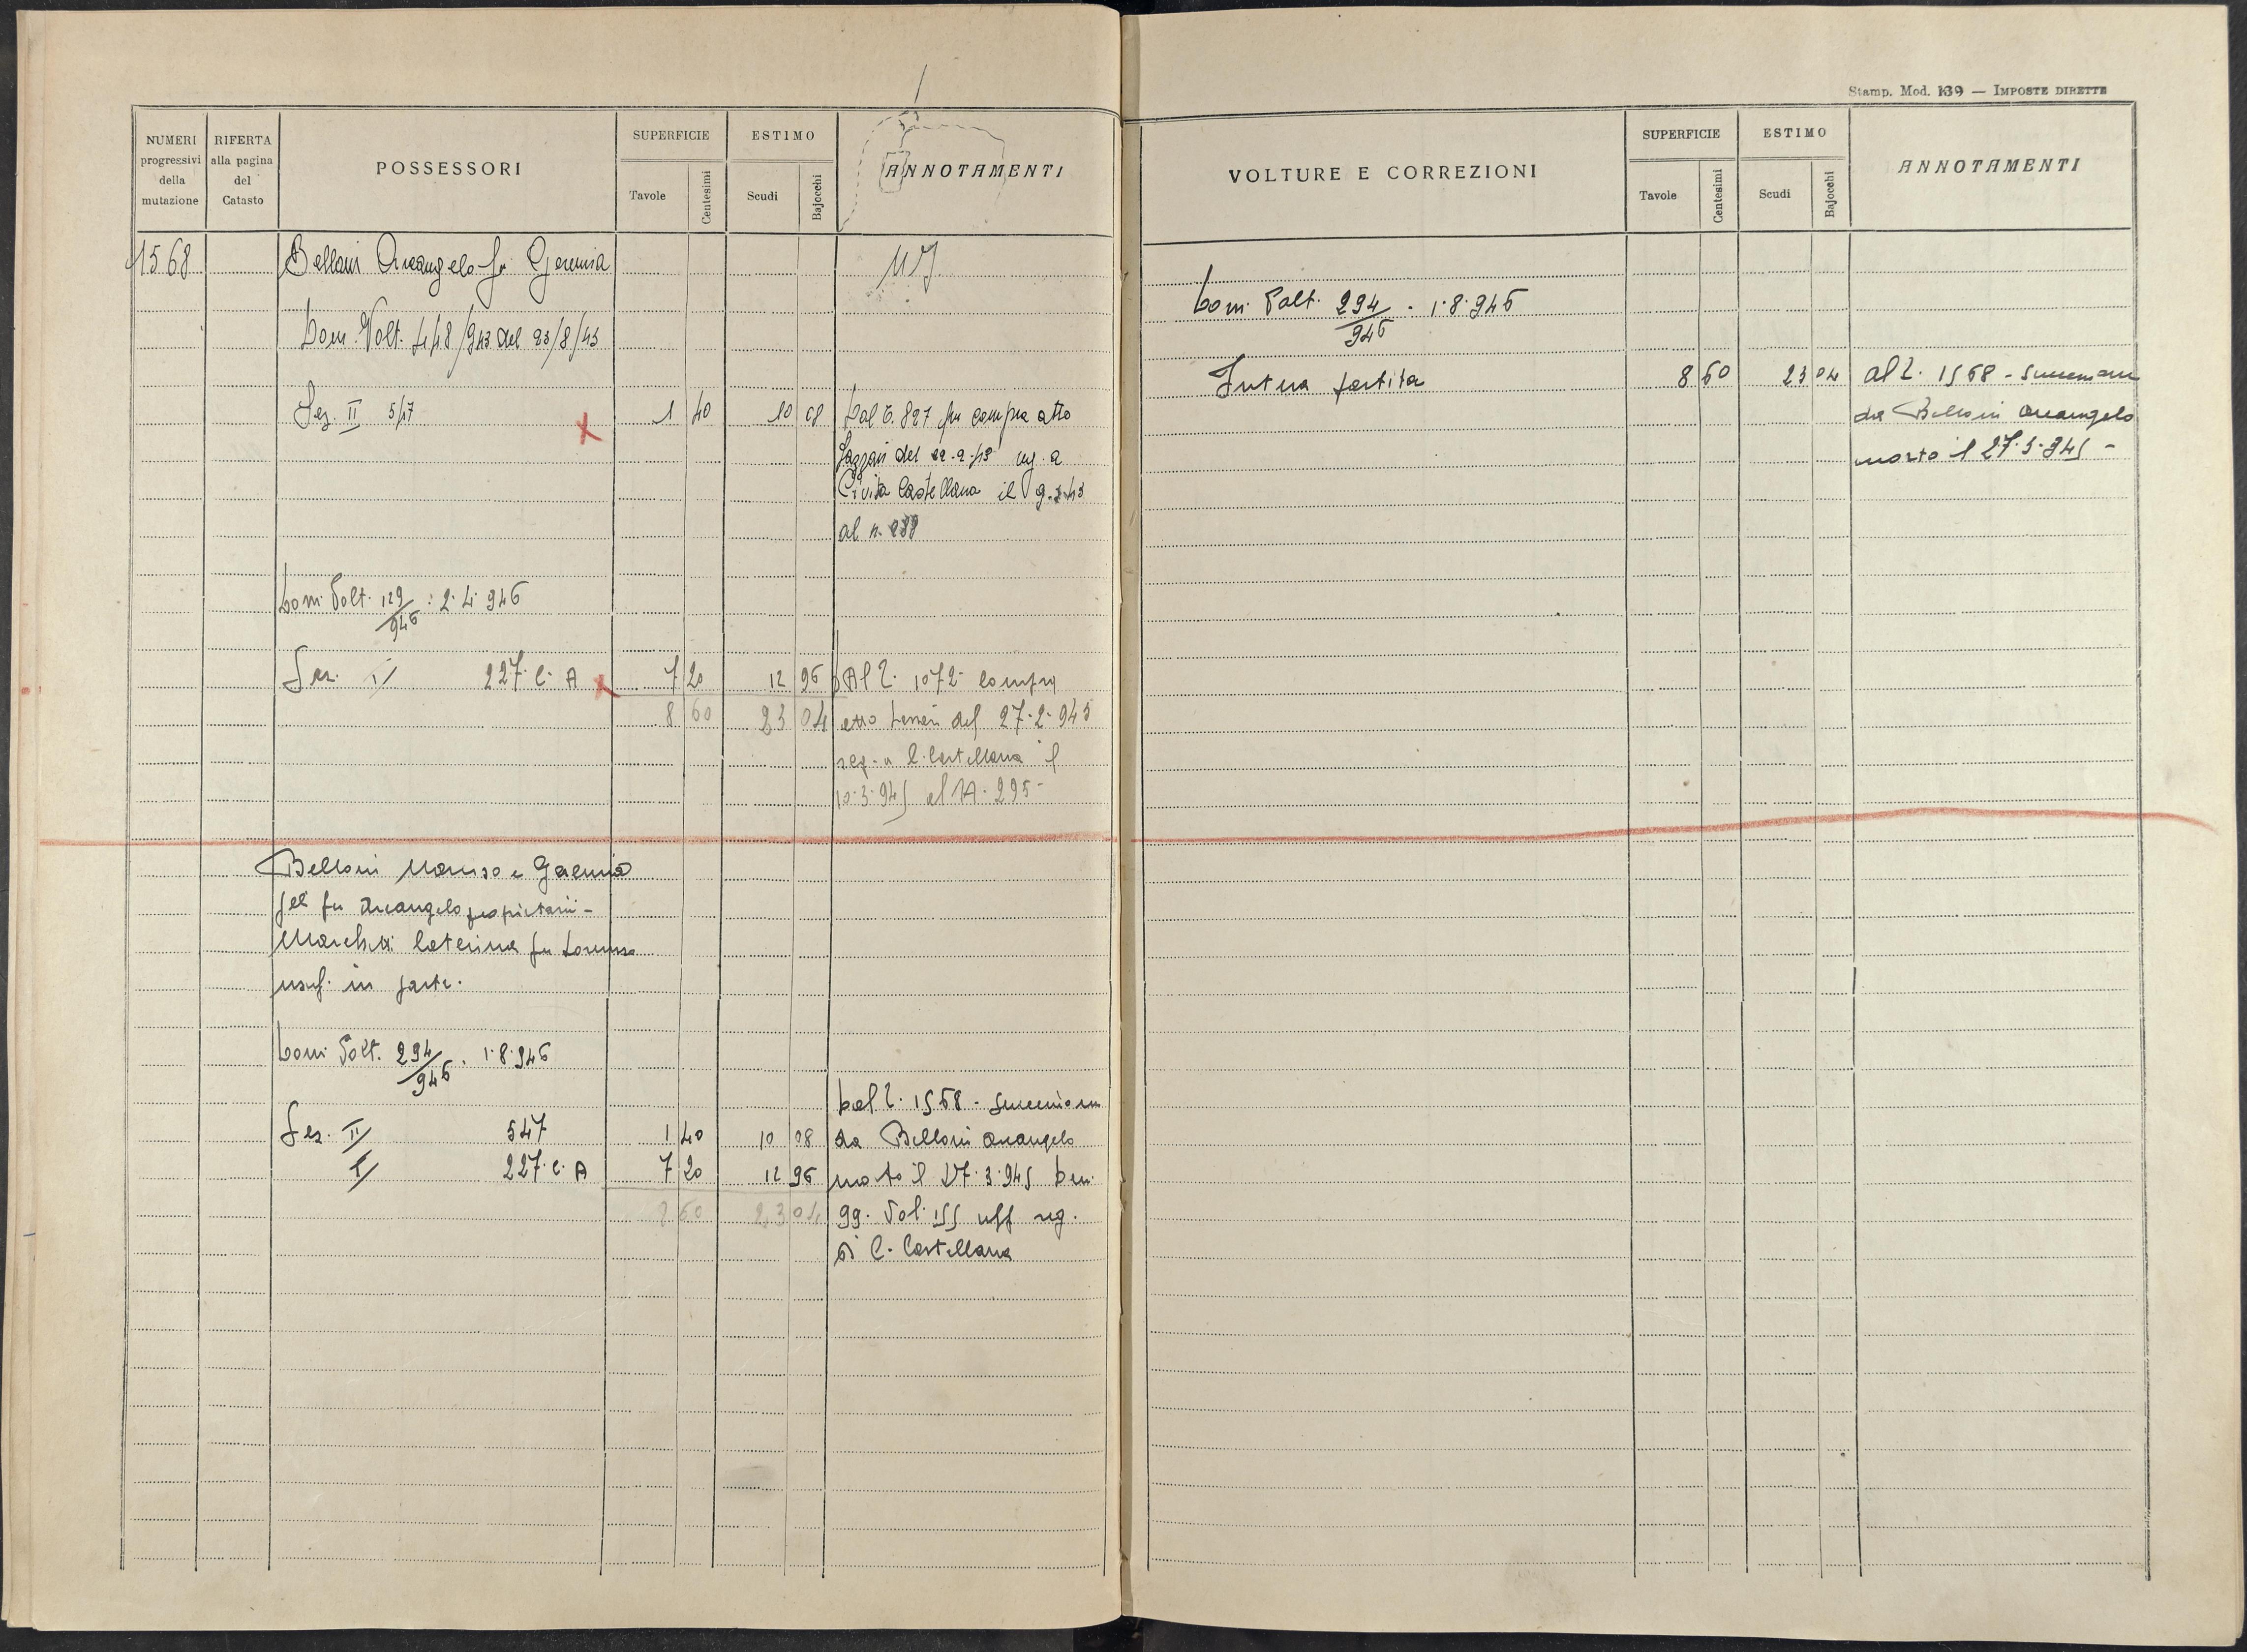 Stamp. Mod. 139 — IMPOSTE DIRETTE
NUMERI progressivi della mutazione
RIFERTA alla pagina del Catasto
POSSESSORI
SUPERFICIE
Tavole
Centesimi
ESTIMO
Scudi
Bajocchi
ANNOTAMENTI
1568 Belloni Arcangelo fu Geremia
Dom. Volt. 448/943 del 23/8/43
Sez. II 547 1 40 10 08 Dal C. 827 per compra atto
del 22.2.43 reg. a
Civita Castellana il 9.3.43
al n. 288
Dom. Volt. 129/946 : 2.4.946
Sez. I 227 C. A 7 20 12 96 Al C. 1072 compra
8 60 23 04 atto del 27.2.945
reg. a C. Castellana il
10.3.945 al N. 295-
Belloni e Geremia
fu Arcangelo proprietari -
Caterina fu Lorenzo
usuf. in parte.
Dom. Volt. 294/946 . 1.8.946
Dal C. 1568 - Successione
Sez. II 547 1 40 10 08 da Belloni Arcangelo
I 227 C. A 7 20 12 96 morto il 27.3.945 Den.
8 60 23 04 99. Vol. 155 uff. reg.
di C. Castellana
VOLTURE E CORREZIONI
SUPERFICIE
Tavole
Centesimi
ESTIMO
Scudi
Bajocchi
ANNOTAMENTI
Dom. Volt. 294/946 . 1.8.946
Intera partita 8 60 23 04 al C. 1568 - Successione
da Belloni Arcangelo
morto il 27.3.945 -